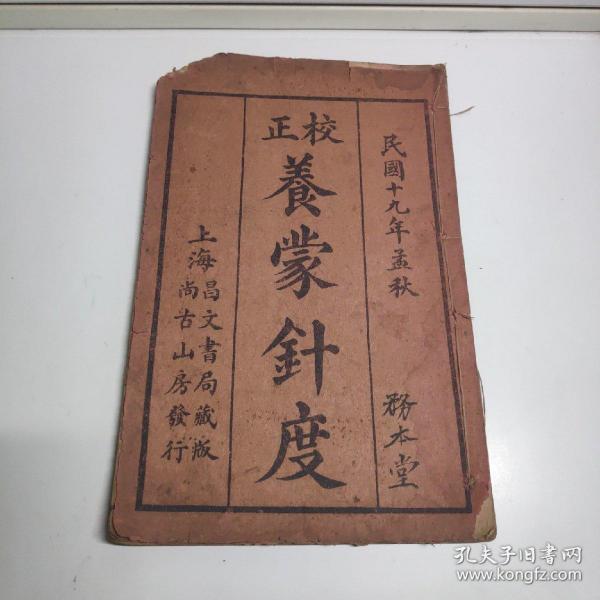 民國十九年孟秋
務本堂
校正
養蒙針度
上海
昌文書局藏版
尚古山房發行
孔夫子旧书网
www.kongfz.com